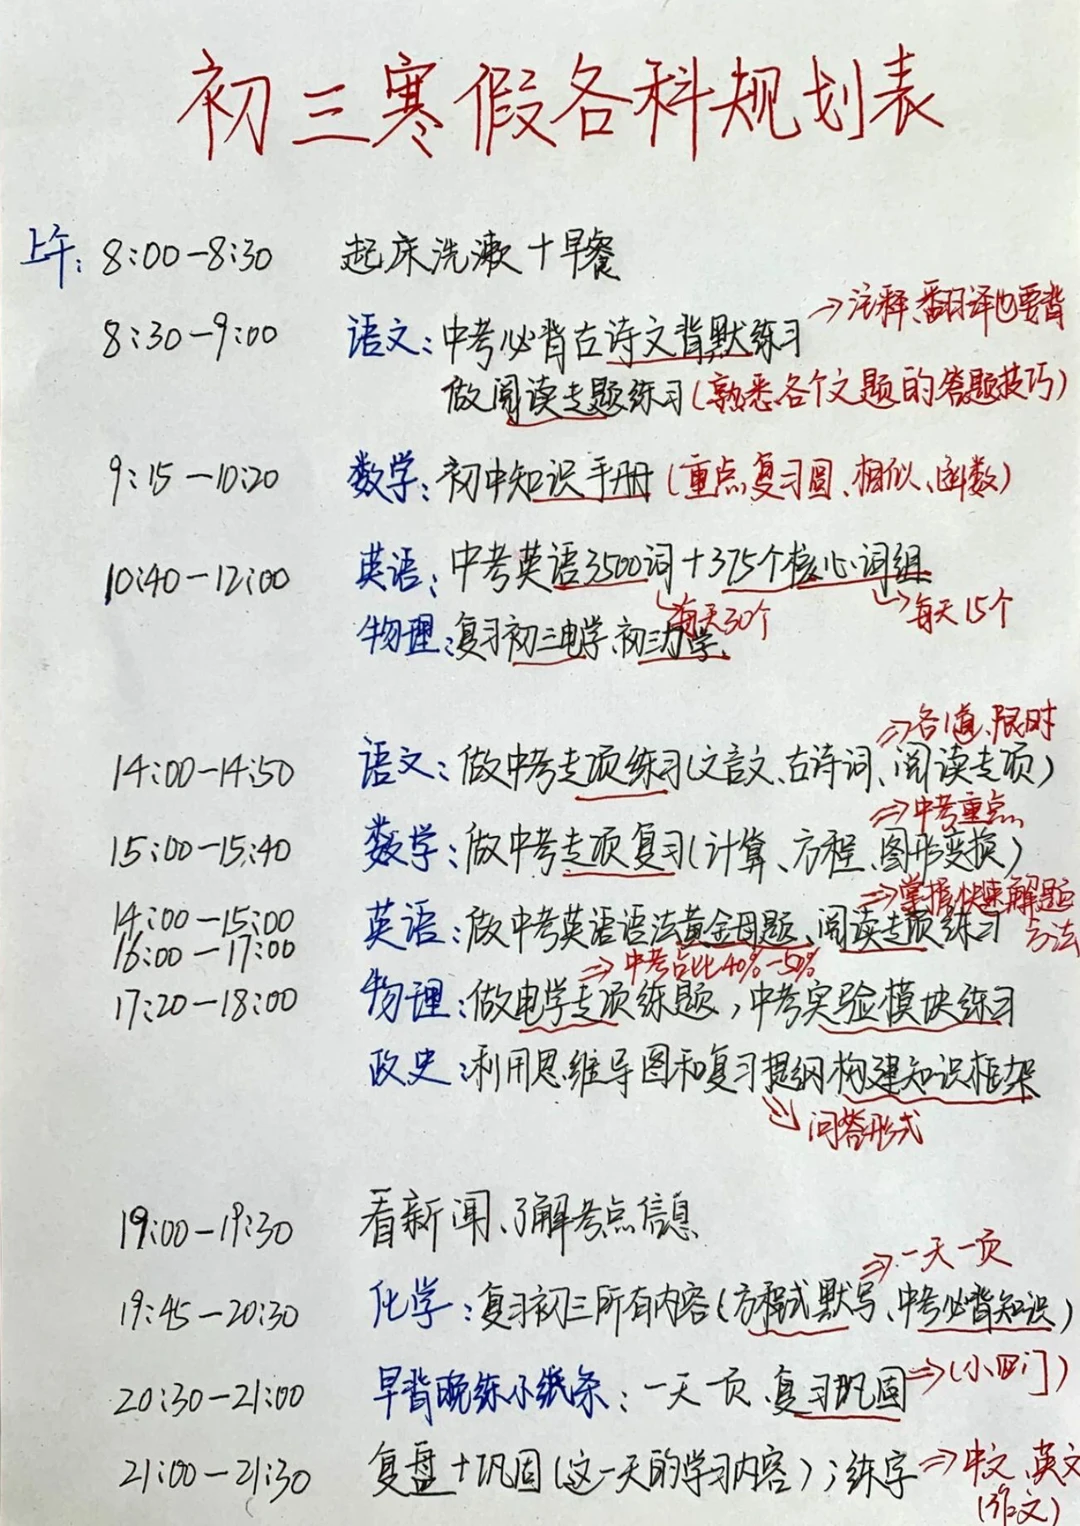 初三寒假各科规划表
上午: 8:00-8:30 起床洗漱+早餐
⇒注释、翻译也要背
8:30-9:00 语文: 中考必背古诗文背默练习
做阅读专题练习(熟悉各个文题的答题技巧)
9:15-10:20 数学: 初中知识手册(重点复习圆、相似、函数)
10:40-12:00 英语: 中考英语3500词+375个核心词组
→每天30个 →每天15个
物理: 复习初三电学、初三力学.
⇒各1道、限时
14:00-14:50 语文: 做中考专项练习(文言文、古诗词、阅读专项)
⇒中考重点
15:00-15:40 数学: 做中考专项复习(计算、方程、图形变换)
⇒掌握快速解题方法
14:00-15:00 英语: 做中考英语语法黄金母题、阅读专项练习
16:00-17:00
⇒中考占比40%-50%
17:20-18:00 物理: 做电学专项练题,中考实验模块练习
政史: 利用思维导图和复习提纲构建知识框架
⇒问答形式
19:00-19:30 看新闻、了解考点信息
⇒一天一页
19:45-20:30 化学: 复习初三所有内容(方程式默写、中考必背知识)
20:30-21:00 早背晚练小纸条: 一天一页、复习巩固⇒(小四门)
21:00-21:30 复盘+巩固(这一天的学习内容);练字⇒中文、英文
(作文)